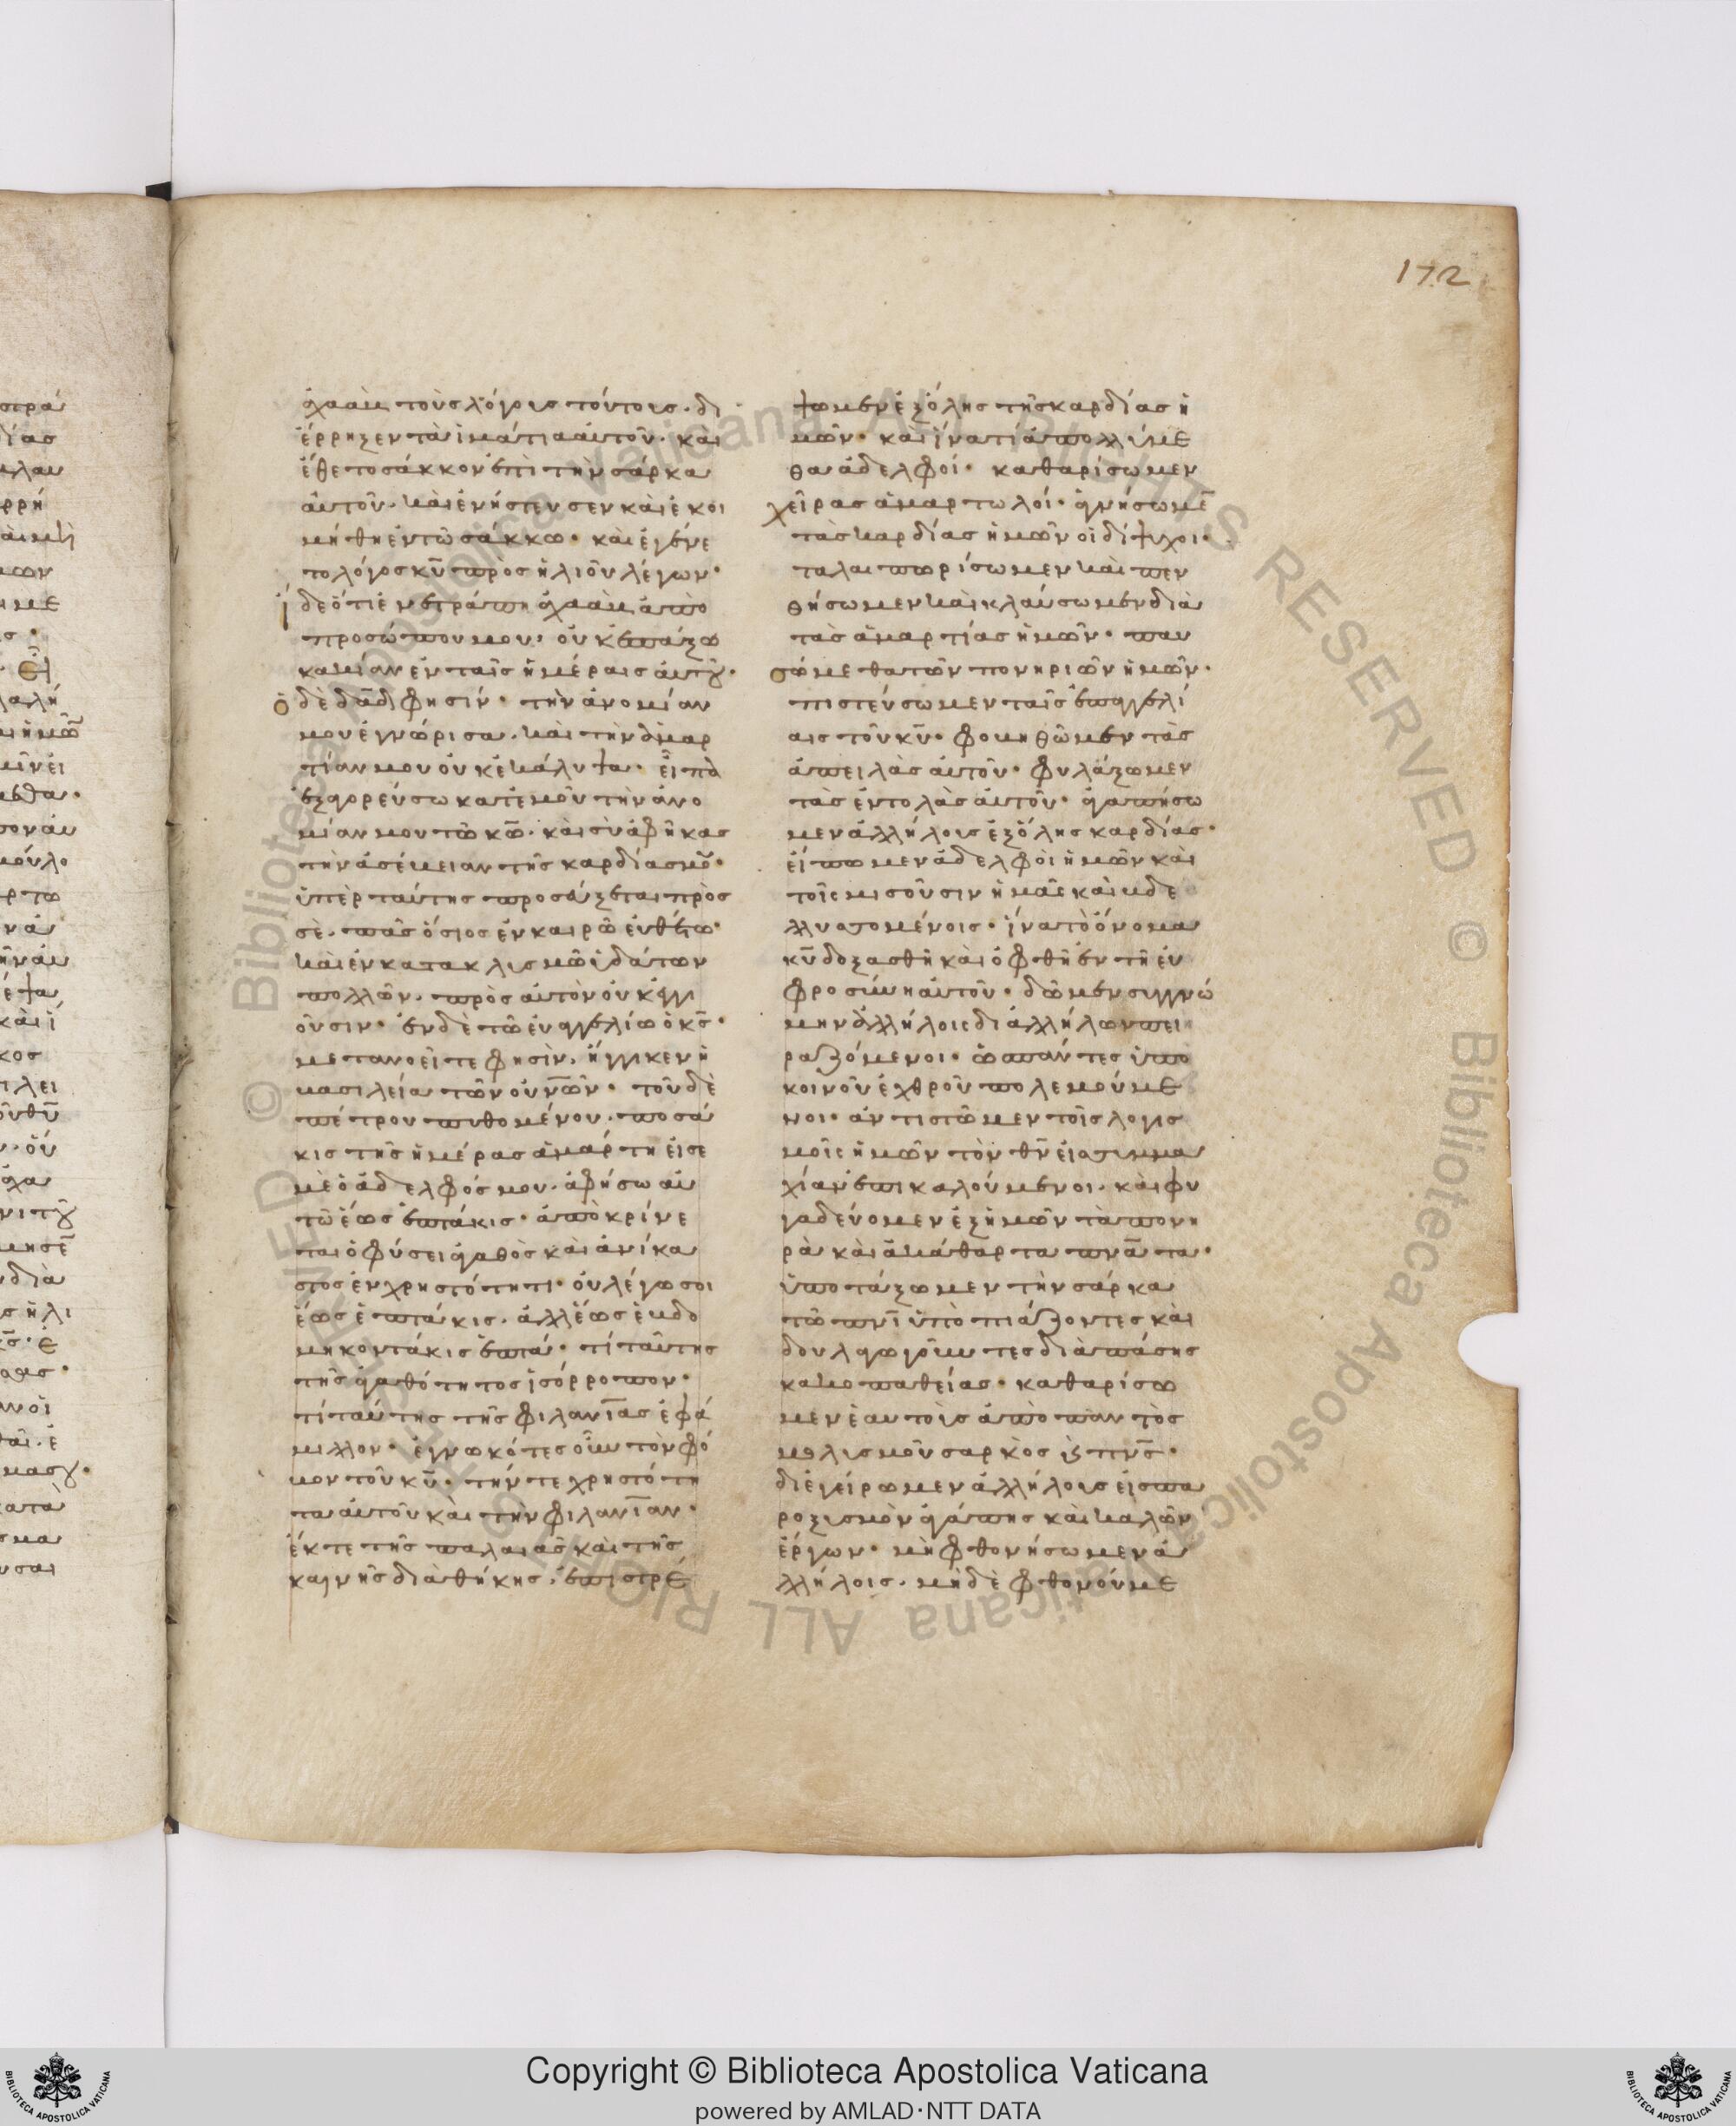 172
ἀχαὰμ τοὺς λόγους τούτους· δι
έρρηξεν τὰ ἱμάτια αὐτοῦ· καὶ
ἔθετο σάκκον ἐπὶ τὴν σάρκα
αὐτοῦ· καὶ ἐνήστευσεν καὶ ἐκοι
μήθη ἐν τῶ σάκκω· καὶ ἐγένε
το λόγος κυ̅ πρὸς ἡλιοῦ λέγων·
ἰδε ὅτι ἐνετράπη ἀχαὰμ ἀπὸ
προσώπου μου· οὐκ ἐπάξω
κακίαν ἐν ταῖς ἡμέραις αὐτοῦ·
ὁ δὲ δα̅δ φησίν· τὴν ἀνομίαν
μου ἐγνώρισα· καὶ τὴν ἁμαρ
τίαν μου οὐκ ἐκάλυψα· εἶπα
ἐξαγορεύσω κατ' ἐμοῦ τὴν ἀνο
μίαν μου τῶ κω̅· καὶ σὺ ἀφῆκας
τὴν ἀσέβειαν τῆς καρδίας μου·
ὑπὲρ ταύτης προσεύξεται πρὸς
σὲ· πᾶς ὅσιος ἐν καιρῶ εὐθέτω·
καὶ ἐν κατακλισμῶ ὑδάτων
πολλῶν· πρὸς αὐτὸν οὐκ ἐγγι
οῦσιν· ἐν δὲ τῶ εὐαγγελίω ὁ κς̅·
μετανοεῖτε φησὶν· ἤγγικεν ἡ
βασιλεία τῶν οὐν̅ῶν· τοῦ δὲ
πέτρου πυθομένου· ποσά
κις τῆς ἡμέρας ἁμάρτη εἰς ἐ
μὲ ὁ ἀδελφός μου· ἀφήσω αὐ
τῶ ἕως ἑπτάκις· ἀποκρίνε
ται ὁ φύσει ἀγαθὸς καὶ ἀνίκα
στος ἐν χρηστότητι· οὐ λέγω σοι
ἕως ἑπτάκις· ἀλλ' ἕως ἑβδο
μηκοντάκις ἑπτά· τί ταύτης
τῆς ἀγαθότητος ἰσόρροπον·
τί ταύτης τῆς φιλανι̅ας ἐφά
μιλλον· ἐγνωκότες οὖν τὸν φό
βον τοῦ κυ̅· τήν τε χρηστότη
τα αὐτοῦ καὶ τὴν φιλανι̅αν·
ἔκ τε τῆς παλαιᾶς καὶ τῆς
καινῆς διαθήκης· ἐπιστρέ
ψωμεν ἐξ ὅλης τῆς καρδίας ἡ
μῶν· καὶ ἵνα τί ἀπολλύμε
θα ἀδελφοί· καθαρίσωμεν
χεῖρας ἁμαρτωλοί· ἁγνήσωμε̅
τὰς καρδίας ἡμῶν οἱ δίψυχοι·
ταλαιπωρίσωμεν καὶ πεν
θήσωμεν καὶ κλαύσωμεν διὰ
τὰς ἁμαρτίας ἡμῶν· παυ
σώμεθα τῶν πονηριῶν ἡμῶν·
πιστεύσωμεν ταῖς ἐπαγγελί
αις τοῦ κυ̅· φοβηθῶμεν τὰς
ἀπειλὰς αὐτοῦ· φυλάξωμεν
τὰς ἐντολὰς αὐτοῦ· ἀγαπήσω
μεν ἀλλήλους ἐξ ὅλης καρδίας·
εἴπωμεν ἀδελφοὶ ἡμῶν καὶ
τοῖς μισοῦσιν ἡμᾶς καὶ βδε
λλυσσομένοις· ἵνα τὸ ὄνομα
κυ̅ δοξασθῆ καὶ ὀφθῆ ἐν τῆ εὐ
φροσύνη αὐτοῦ· δῶμεν συγγνώ
μην ἀλλήλοις δι' ἀλλήλων πει
ραζόμενοι· ὡς πάντες ὑπὸ
κοινοῦ ἐχθροῦ πολεμούμε
νοι· ἀντιστῶμεν τοῖς λογισ
μοῖς ἡμῶν τὸν θν̅ εἰς συμμα
χίαν ἐπικαλούμενοι· καὶ φυ
γαδεύομεν ἐξ ἡμῶν τὰ πονη
ρὰ καὶ ἀκάθαρτα πνα̅τα·
ὑποτάξωμεν τὴν σάρκα
τῶ πνι̅ ὑποπιάζοντες καὶ
δουλαγωγοῦντες διὰ πάσης
κακοπαθείας· καθαρίσω
μεν ἑαυτοὺς ἀπὸ παντὸς
μολισμοῦ σαρκὸς καὶ πνς̅·
διεγείρωμεν ἀλλήλους εἰς πα
ροξισμὸν ἀγάπης καὶ καλῶν
ἔργων· μὴ φθονήσωμεν ἀ
λλήλοις· μὴ δὲ φθονούμε
Copyright © Biblioteca Apostolica Vaticana
powered by AMLAD·NTT DATA